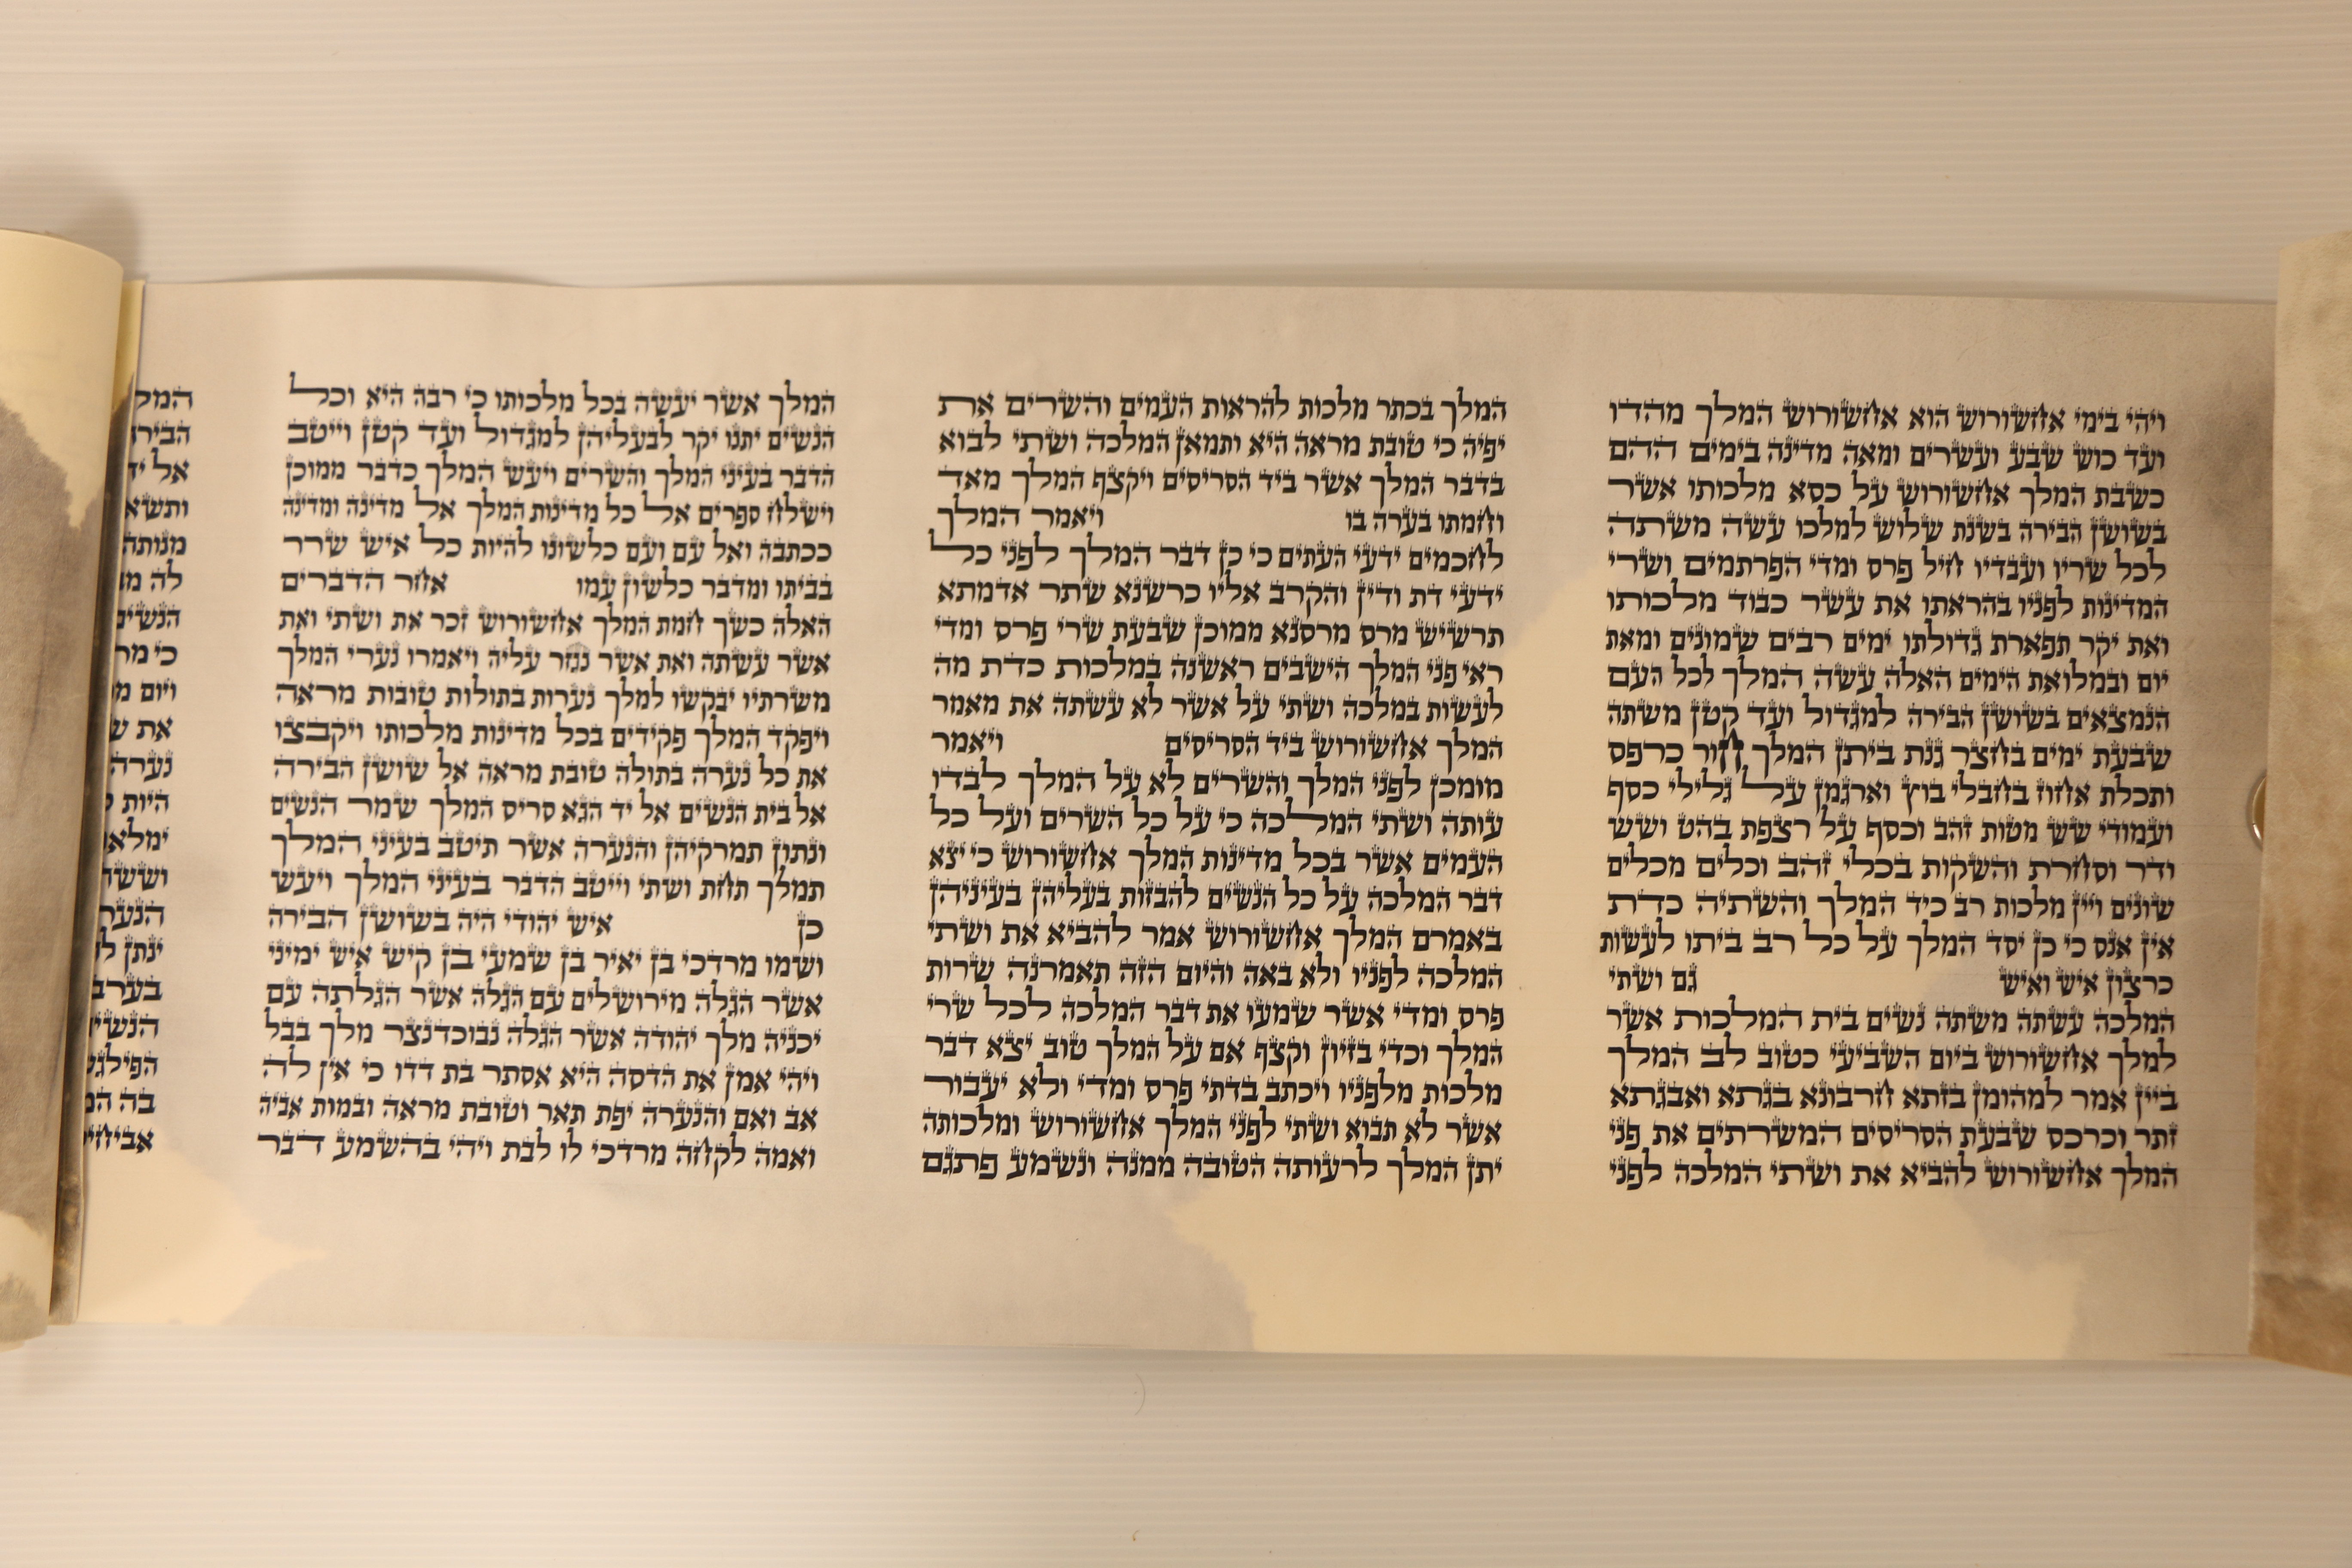 ויהי בימי אחשורוש הוא אחשורוש המלך מהדו
ועד כוש שבע ועשרים ומאה מדינה בימים ההם
כשבת המלך אחשורוש על כסא מלכותו אשר
בשושן הבירה בשנת שלוש למלכו עשה משתה
לכל שריו ועבדיו חיל פרס ומדי הפרתמים ושרי
המדינות לפניו בהראתו את עשר כבוד מלכותו
ואת יקר תפארת גדולתו ימים רבים שמונים ומאת
יום ובמלואת הימים האלה עשה המלך לכל העם
הנמצאים בשושן הבירה למגדול ועד קטן משתה
שבעת ימים בחצר גנת ביתן המלך חור כרפס
ותכלת אחוז בחבלי בוץ וארגמן על גלילי כסף
ועמודי שש מטות זהב וכסף על רצפת בהט ושש
ודר וסחרת והשקות בכלי זהב וכלים מכלים
שונים ויין מלכות רב כיד המלך והשתיה כדת
אין אנס כי כן יסד המלך על כל רב ביתו לעשות
כרצון איש ואיש גם ושתי
המלכה עשתה משתה נשים בית המלכות אשר
למלך אחשורוש ביום השביעי כטוב לב המלך
ביין אמר למהומן בזתא חרבונא בגתא ואבגתא
זתר וכרכס שבעת הסריסים המשרתים את פני
המלך אחשורוש להביא את ושתי המלכה לפני
המלך בכתר מלכות להראות העמים והשרים את
יפיה כי טובת מראה היא ותמאן המלכה ושתי לבוא
בדבר המלך אשר ביד הסריסים ויקצף המלך מאד
וחמתו בערה בו ויאמר המלך
לחכמים ידעי העתים כי כן דבר המלך לפני כל
ידעי דת ודין והקרב אליו כרשנא שתר אדמתא
תרשיש מרס מרסנא ממוכן שבעת שרי פרס ומדי
ראי פני המלך הישבים ראשנה במלכות כדת מה
לעשות במלכה ושתי על אשר לא עשתה את מאמר
המלך אחשורוש ביד הסריסים ויאמר
מומכן לפני המלך והשרים לא על המלך לבדו
עותה ושתי המלכה כי על כל השרים ועל כל
העמים אשר בכל מדינות המלך אחשורוש כי יצא
דבר המלכה על כל הנשים להבזות בעליהן בעיניהן
באמרם המלך אחשורוש אמר להביא את ושתי
המלכה לפניו ולא באה והיום הזה תאמרנה שרות
פרס ומדי אשר שמעו את דבר המלכה לכל שרי
המלך וכדי בזיון וקצף אם על המלך טוב יצא דבר
מלכות מלפניו ויכתב בדתי פרס ומדי ולא יעבור
אשר לא תבוא ושתי לפני המלך אחשורוש ומלכותה
יתן המלך לרעותה הטובה ממנה ונשמע פתגם
המלך אשר יעשה בכל מלכותו כי רבה היא וכל
הנשים יתנו יקר לבעליהן למגדול ועד קטן וייטב
הדבר בעיני המלך והשרים ויעש המלך כדבר ממוכן
וישלח ספרים אל כל מדינות המלך אל מדינה ומדינה
ככתבה ואל עם ועם כלשונו להיות כל איש שרר
בביתו ומדבר כלשון עמו אחר הדברים
האלה כשך חמת המלך אחשורוש זכר את ושתי ואת
אשר עשתה ואת אשר נגזר עליה ויאמרו נערי המלך
משרתיו יבקשו למלך נערות בתולות טובות מראה
ויפקד המלך פקידים בכל מדינות מלכותו ויקבצו
את כל נערה בתולה טובת מראה אל שושן הבירה
אל בית הנשים אל יד הגא סריס המלך שמר הנשים
ונתון תמרקיהן והנערה אשר תיטב בעיני המלך
תמלך תחת ושתי וייטב הדבר בעיני המלך ויעש
כן איש יהודי היה בשושן הבירה
ושמו מרדכי בן יאיר בן שמעי בן קיש איש ימיני
אשר הגלה מירושלים עם הגלה אשר הגלתה עם
יכניה מלך יהודה אשר הגלה נבוכדנצר מלך בבל
ויהי אמן את הדסה היא אסתר בת דדו כי אין לה
אב ואם והנערה יפת תאר וטובת מראה ובמות אביה
ואמה לקחה מרדכי לו לבת ויהי בהשמע דבר
אל
מנותה
לה
הנשים
כי
ויום
את
נערה
היות
בה